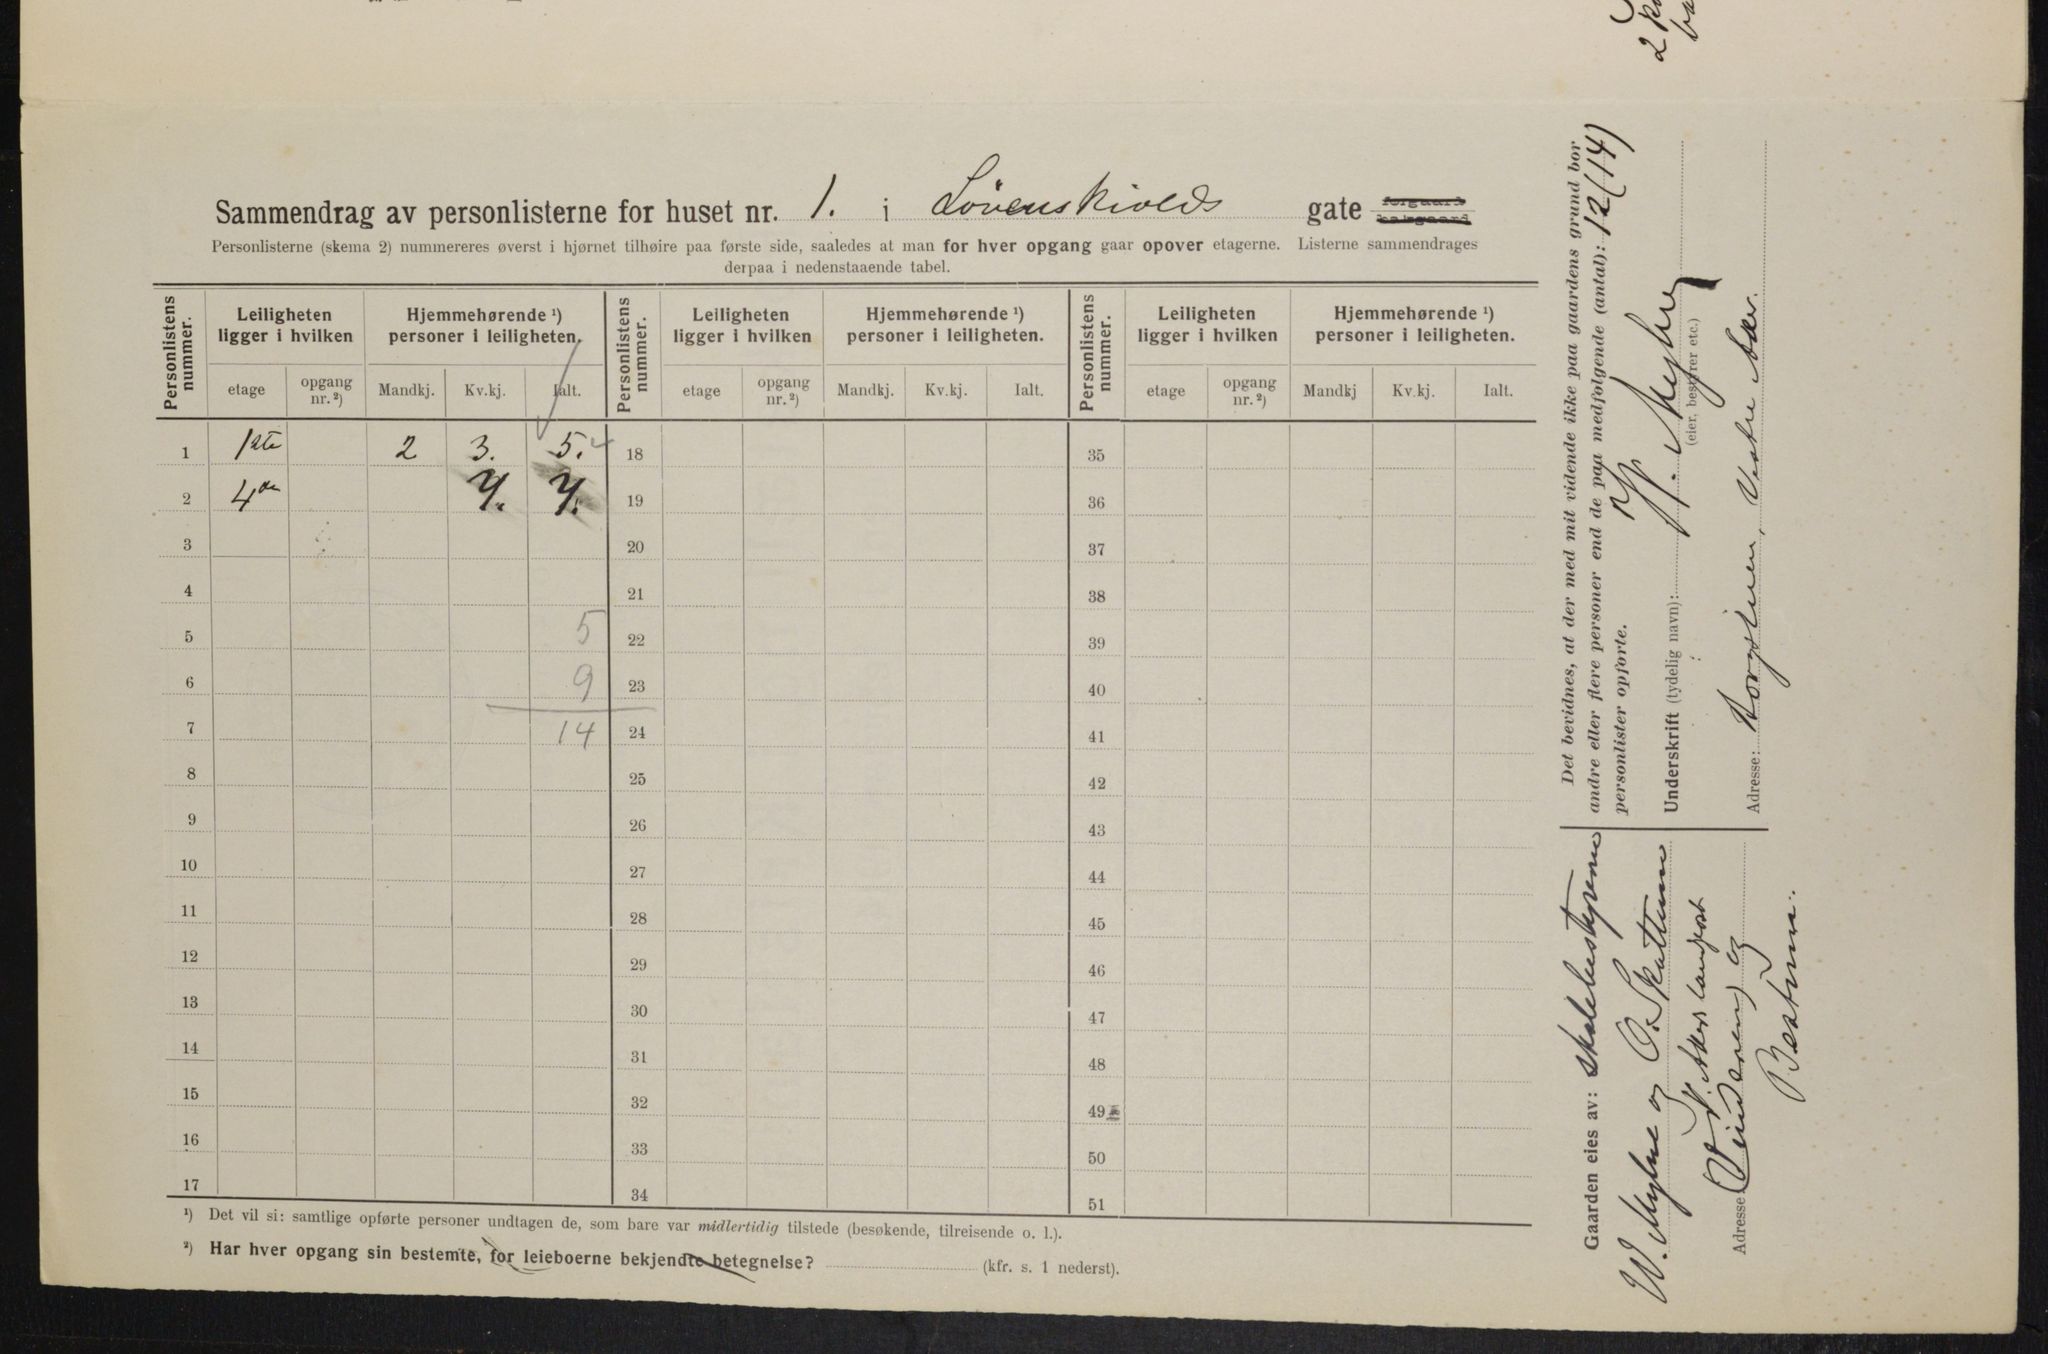 2
Sammendrag av personlisterne for huset nr. 1. i Løvenskiolds gate forgaard bakgaard
Personlisterne (skema 2) nummereres øverst i hjørnet tilhøire paa første side, saaledes at man for hver opgang gaar opover etagerne. Listerne sammendrages
derpaa i nedenstaaende tabel.
Personlistens nummer. Leiligheten ligger i hvilken Hjemmehørende ¹) personer i leiligheten. Personlistens nummer. Leiligheten ligger i hvilken Hjemmehørende ¹) personer i leiligheten. Personlistens nummer. Leiligheten ligger i hvilken Hjemmehørende ¹) personer i leiligheten.
etage opgang nr. ²) Mandkj. Kv.kj. Ialt. etage opgang nr. ²) Mandkj. Kv.kj. Ialt. etage opgang nr. ²) Mandkj Kv.kj. Ialt.
1 1ste 2 3. 5. 18 35
2 4de 7. 7. 19 36
3 20 37
4 21 38
5 5 22 39
6 9 23 40
7 14 24 41
8 25 42
9 26 43
10 27 44
11 28 45
12 29 46
13 30 47
14 31 48
15 32 49
16 33 50
17 34 51
¹) Det vil si: samtlige opførte personer undtagen de, som bare var midlertidig tilstede (besøkende, tilreisende o. l.).
²) Har hver opgang sin bestemte, for leieboerne bekjendte betegnelse? (kfr. s. 1 nederst).
Det bevidnes, at der med mit vidende ikke paa gaardens grund bor
andre eller flere personer end de paa medfølgende (antal): 12 (14)
personlister opførte.
Underskrift (tydelig navn): W. Myhre
(eier, bestyrer etc.)
Adresse: Vestre Aker.
Gaarden eies av: skibsbestyrerne
W. Myhre og O. Skattum
V. Akers landpost
Adresse (Vinderen) og
Bestum.